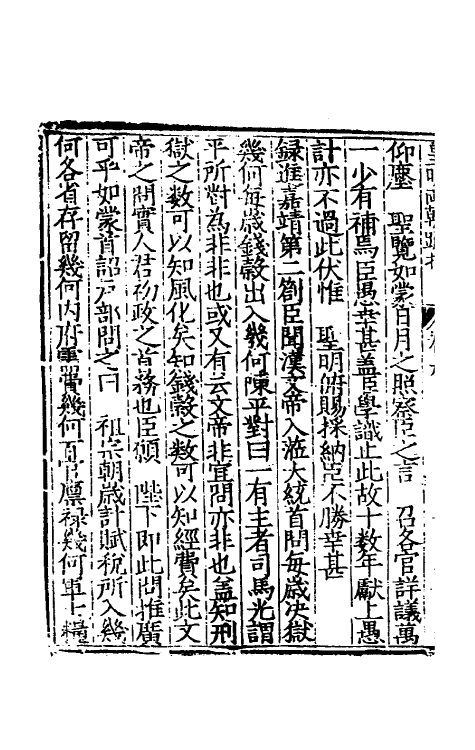 仰塵　聖覽如蒙日月之照察臣之言　召各官詳議萬
一少有補焉臣愚幸甚蓋臣學識止此故十數年獻上愚
計亦不過此伏惟　聖明俯賜採納臣不勝幸甚
録進嘉靖第二劄臣聞漢文帝入涖大統首問每歲决獄
幾何每歲錢穀出入幾何陳平對曰一有主者司馬光謂
平所對為非非也或又有云文帝非宜問亦非也盖知刑
獄之数可以知風化矣知錢穀之数可以知經費矣此文
帝之問實人君初政之首務也臣願　陛下即此問推廣
可乎如蒙首詔戶部問之曰　祖宗朝歲計賦稅所入幾
何各省存留幾何内府軍需費幾何百官廩禄幾何軍士糧